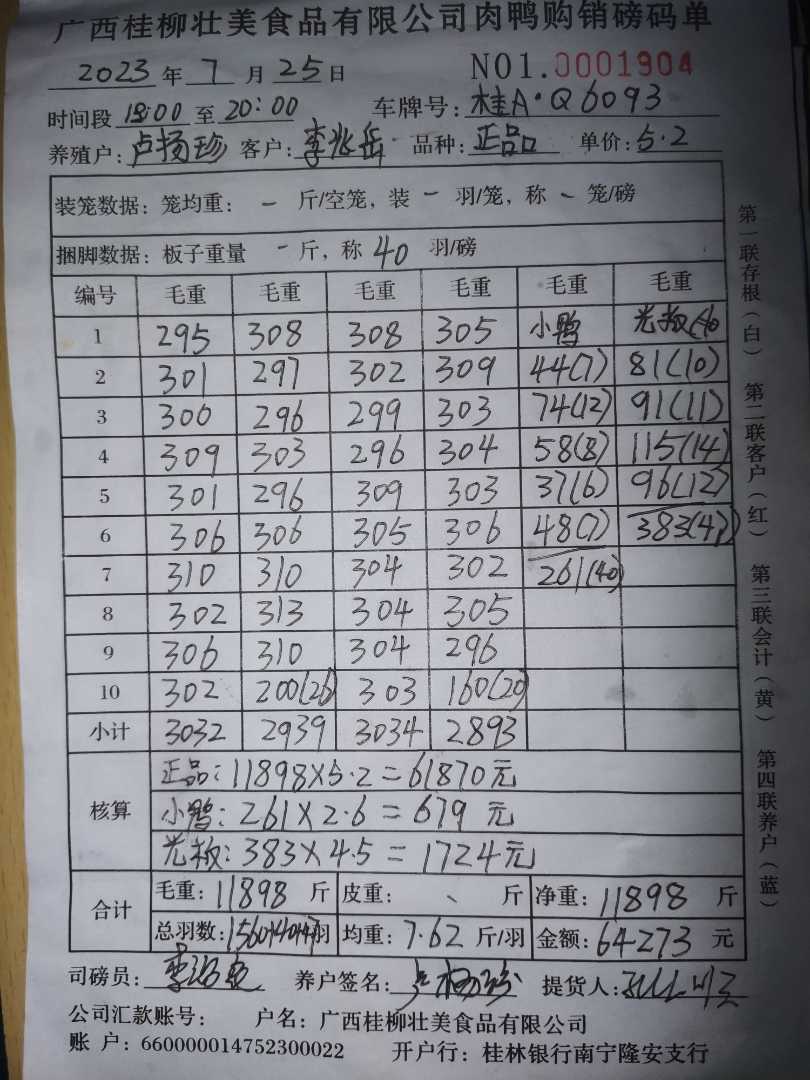 广西桂柳壮美食品有限公司肉鸭购销磅码单
2023年7月25日 NO1.0001904
时间段18:00至20:00 车牌号:桂A·Q6093
养殖户:卢扬珍 客户:李兆岳 品种:正品 单价:5.2
装笼数据:笼均重:- 斤/空笼,装 - 羽/笼,称 - 笼/磅
捆脚数据:板子重量 - 斤,称40羽/磅
编号 毛重 毛重 毛重 毛重 毛重 毛重
1 295 308 308 305 小鸭 光板
2 301 297 302 309 44(7) 81(10)
3 300 296 299 303 74(12) 91(11)
4 309 303 296 304 58(8) 115(14)
5 301 296 309 303 37(6) 96(12)
6 306 306 305 306 48(7) 383(47)
7 310 310 304 302 261(40)
8 302 313 304 305
9 306 310 304 296
10 302 200(26) 303 160(20)
小计 3032 2939 3034 2893
核算
正品:11898×5.2=61870元
小鸭:261×2.6=679元
光板:383×4.5=1724元
合计
毛重:11898斤 皮重:、斤 净重:11898斤
总羽数:1560+40+47羽 均重:7.62斤/羽 金额:64273元
司磅员: 养户签名:卢扬珍 提货人:
公司汇款账号: 户名:广西桂柳壮美食品有限公司
账 户:660000014752300022 开户行:桂林银行南宁隆安支行
第一联存根(白) 第二联客户(红) 第三联会计(黄) 第四联养户(蓝)